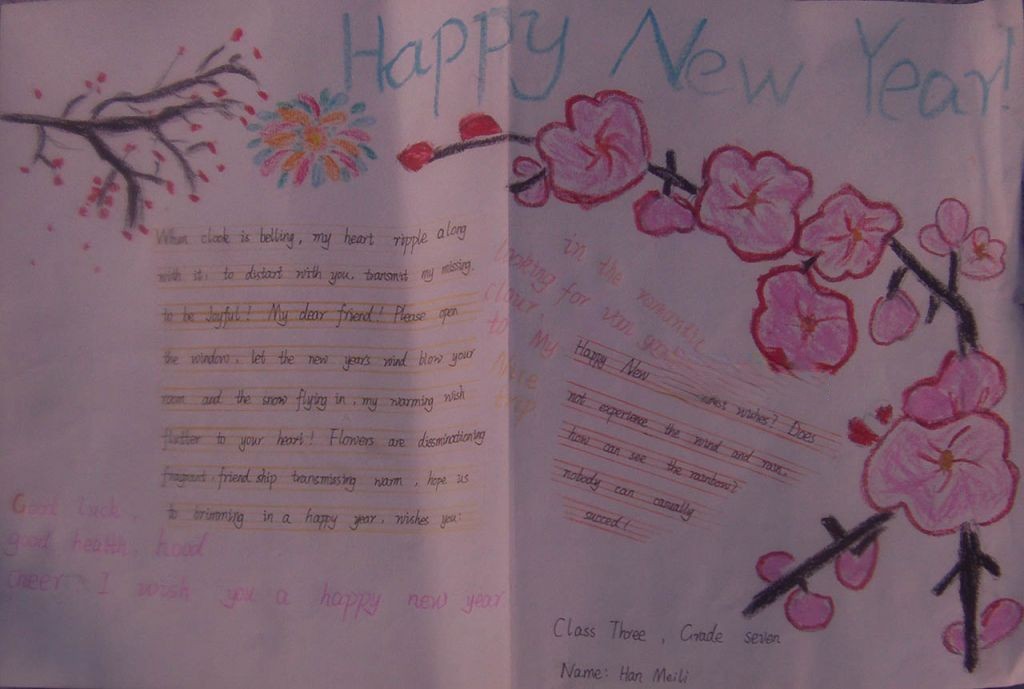 Happy New Year!
When clock is belling, my heart ripple along
with it, to distort with you, transmit my missing.
to be Joyful! My dear friend! Please open
the window, let the new years wind blow your
room and the snow flying in, my warming wish
flutter to your heart! Flowers are disseminationg
fragrant, friend ship transmissing warm, hope us
to brimming in a happy year, wishes you:
Good luck,
good health, hood
cheer. I wish you a happy new year
in the romantic
looking for
to My
Nice
trip
Happy New wishes? Does
not experience the wind and rain,
how can see the rainbow?
nobody can casually
succed!
Class Three, Grade seven
Name: Han Meili